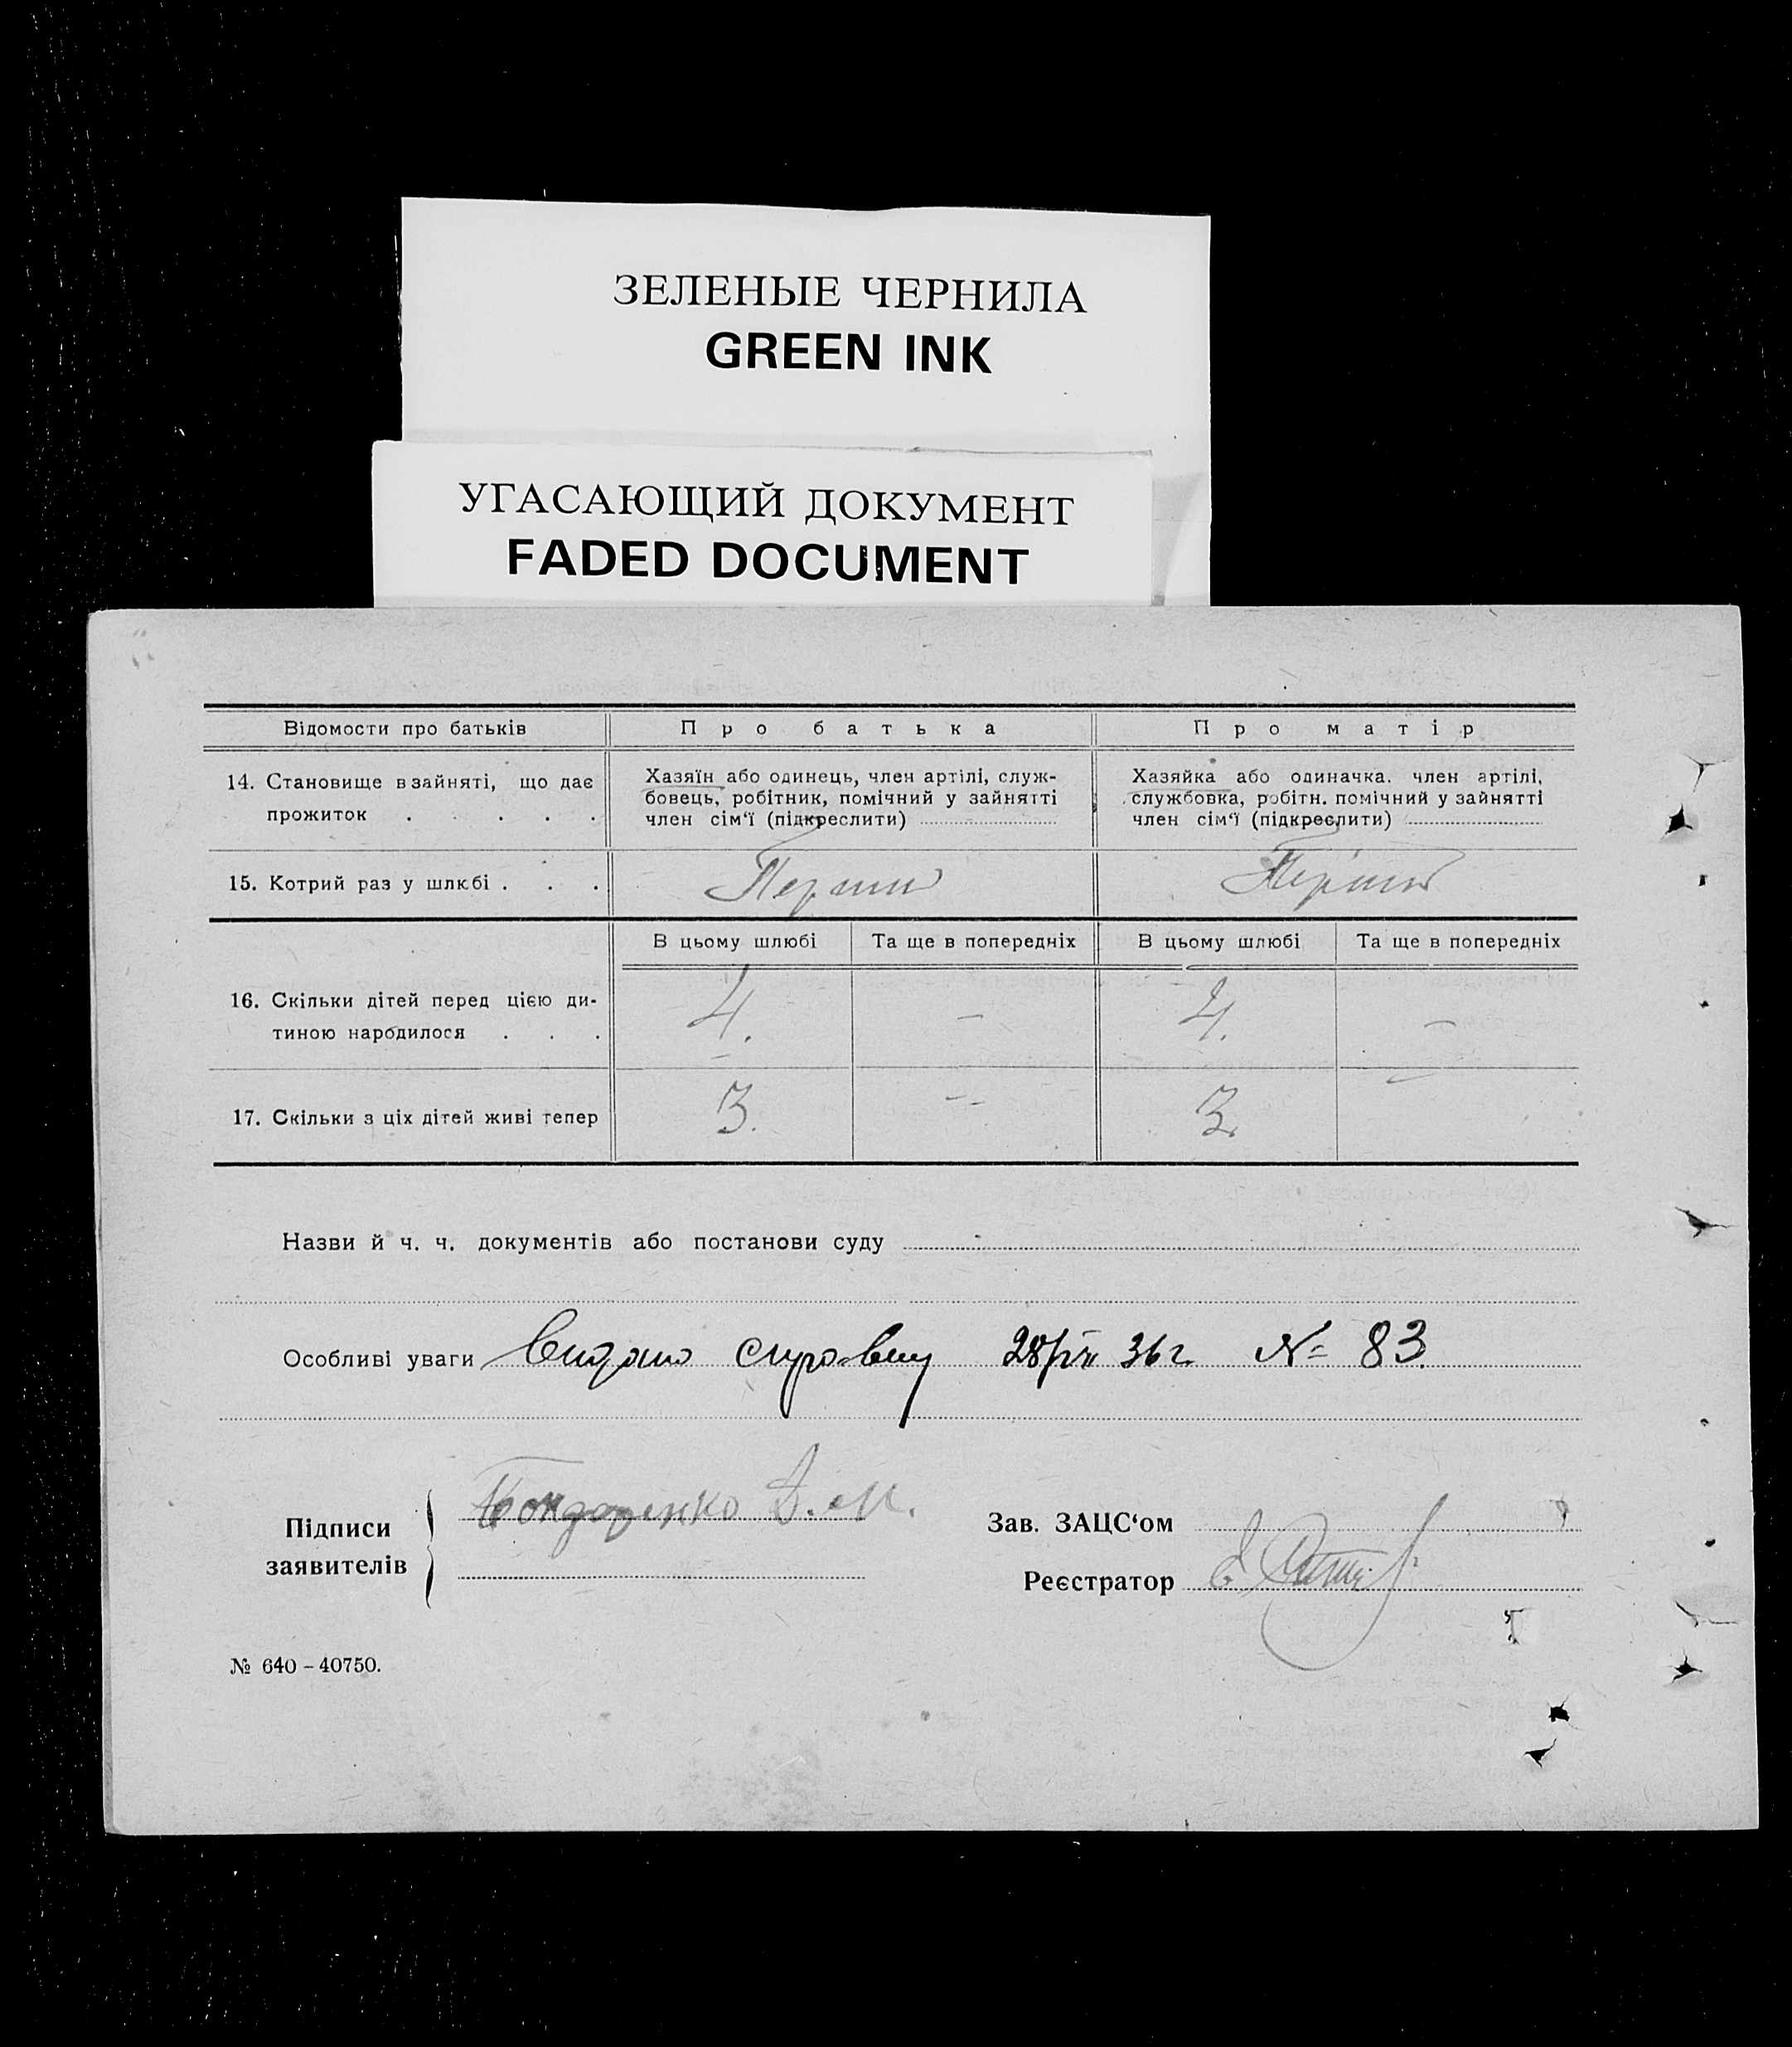 ЗЕЛЕНЫЕ ЧЕРНИЛА
GREEN INK
УГАСАЮЩИЙ ДОКУМЕНТ
FADED DOCUMENT
Відомости про батьків
Про батька
Про матір
14. Становище в зайняті, що дає
прожиток . . . . .
Хазяїн або одинець, член артілі, служ-
бовець, робітник, помічний у зайнятті
член сім‘ї (підкреслити)
Хазяйка або одиначка, член артілі,
службовка, робітн. помічний у зайнятті
член сім‘ї (підкреслити)
15. Котрий раз у шлюбі . . .
Перший
Перший
В цьому шлюбі
Та ще в попередніх
В цьому шлюбі
Та ще в попередніх
16. Скільки дітей перед цією ди-
тиною народилося . . .
4. — 4. —
17. Скільки з ціх дітей живі тепер
3. -- 3. —
Назви й ч. ч. документів або постанови суду
Особливі уваги Видано справку 28/VII 36 г. № 83.
Підписи
заявителів
Бондаренко Д. М.
Зав. ЗАЦС‘ом
Реєстратор
№ 640 – 40750.